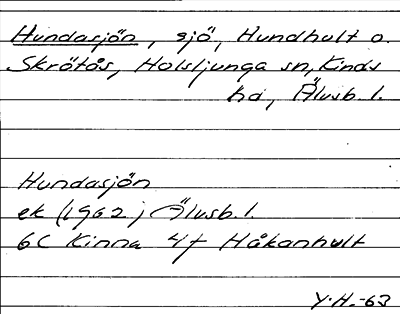 Hundasjön, sjö, Hundhult o.
Skrötås, Holsljunga sn, Kinds
hd, Älvsb. l.
Hundasjön
ek (1962) Älvsb. l.
6C Kinna 4f Håkanhult
Y.H.-63